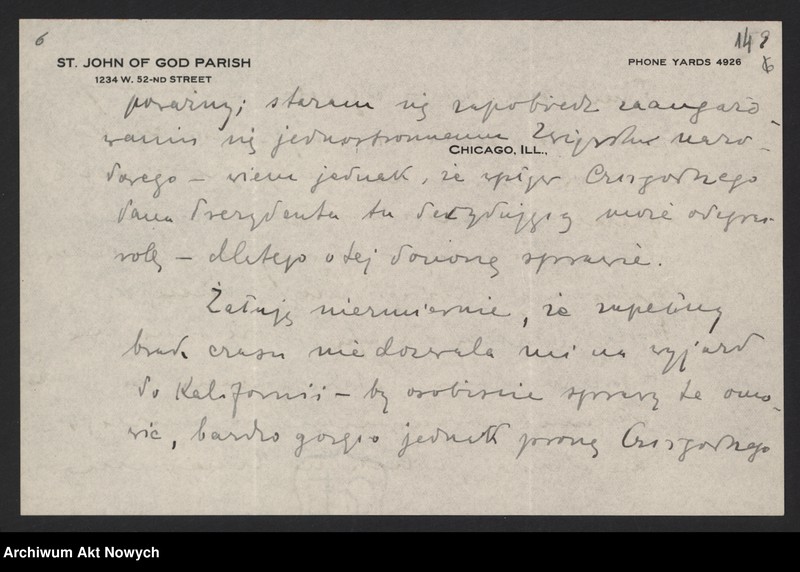 6
148
6
ST. JOHN OF GOD PARISH
1234 W. 52-ND STREET
PHONE YARDS 4926
CHICAGO, ILL.,
poważny; staram się zapobiedz zaangażo-
waniu się jednostronnemu Związku naro-
dowego – wiem jednak, że wpływ Czcigodnego
Pana Prezydenta tu decydującą może odegrać
rolę – dlatego o tej donoszę sprawie.
Żałuję niezmiernie, że zupełny
brak czasu nie dozwala mi na wyjazd
do Kalifornii – by osobiście sprawy te omó-
wić, bardzo gorąco jednak proszę Czcigodnego
Archiwum Akt Nowych